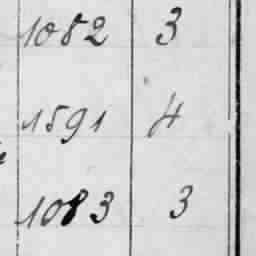 1082 3
1591 4
1083 3